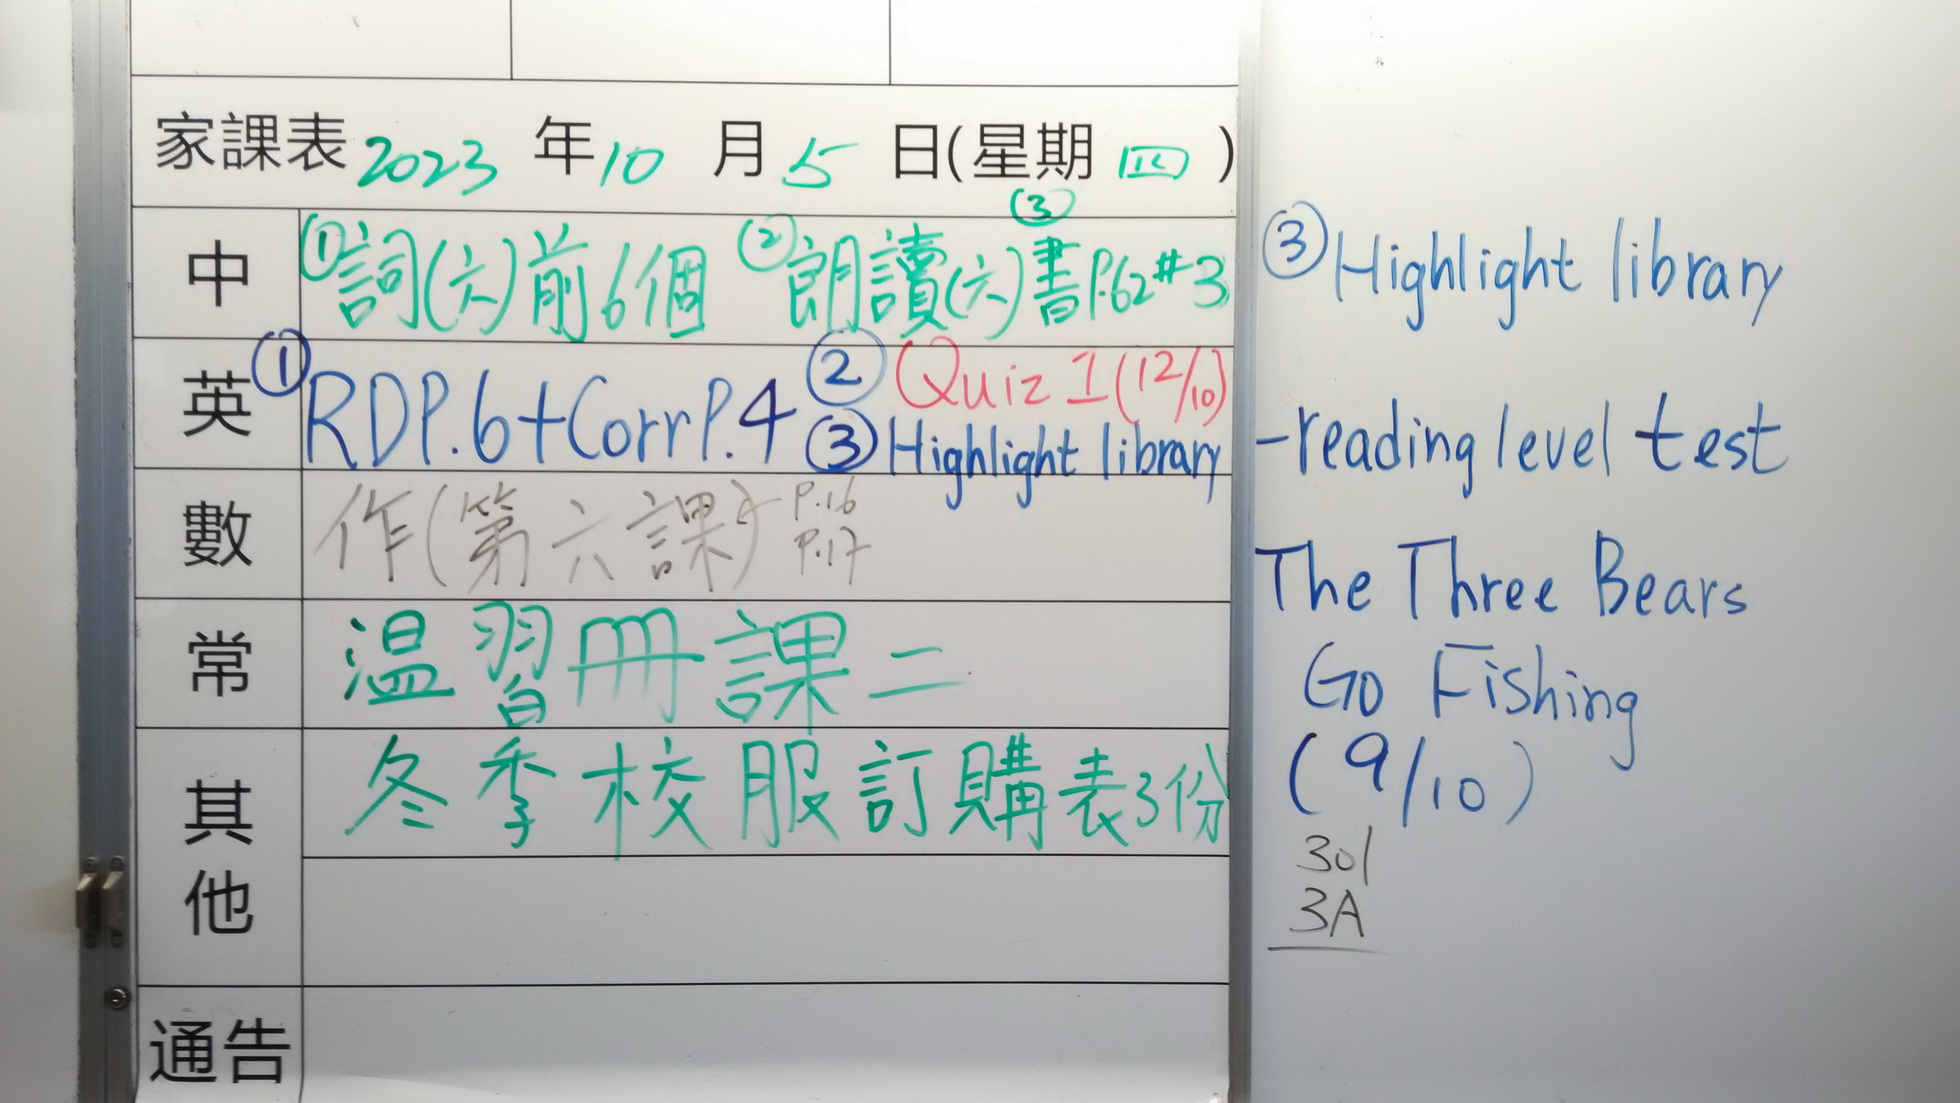 家課表 2023 年 10 月 5 日(星期 四 )
中 ①詞(六)前6個 ②朗讀(六) ③書P.62#3
英 ①RDP.6+CorrP.4 ②Quiz 1(12/10)
③Highlight library
數 作(第六課) P.16
P.17
常 温習冊課二
其他 冬季校服訂購表3份
通告
③Highlight library
-reading level test
The Three Bears
Go Fishing
(9/10)
301
3A